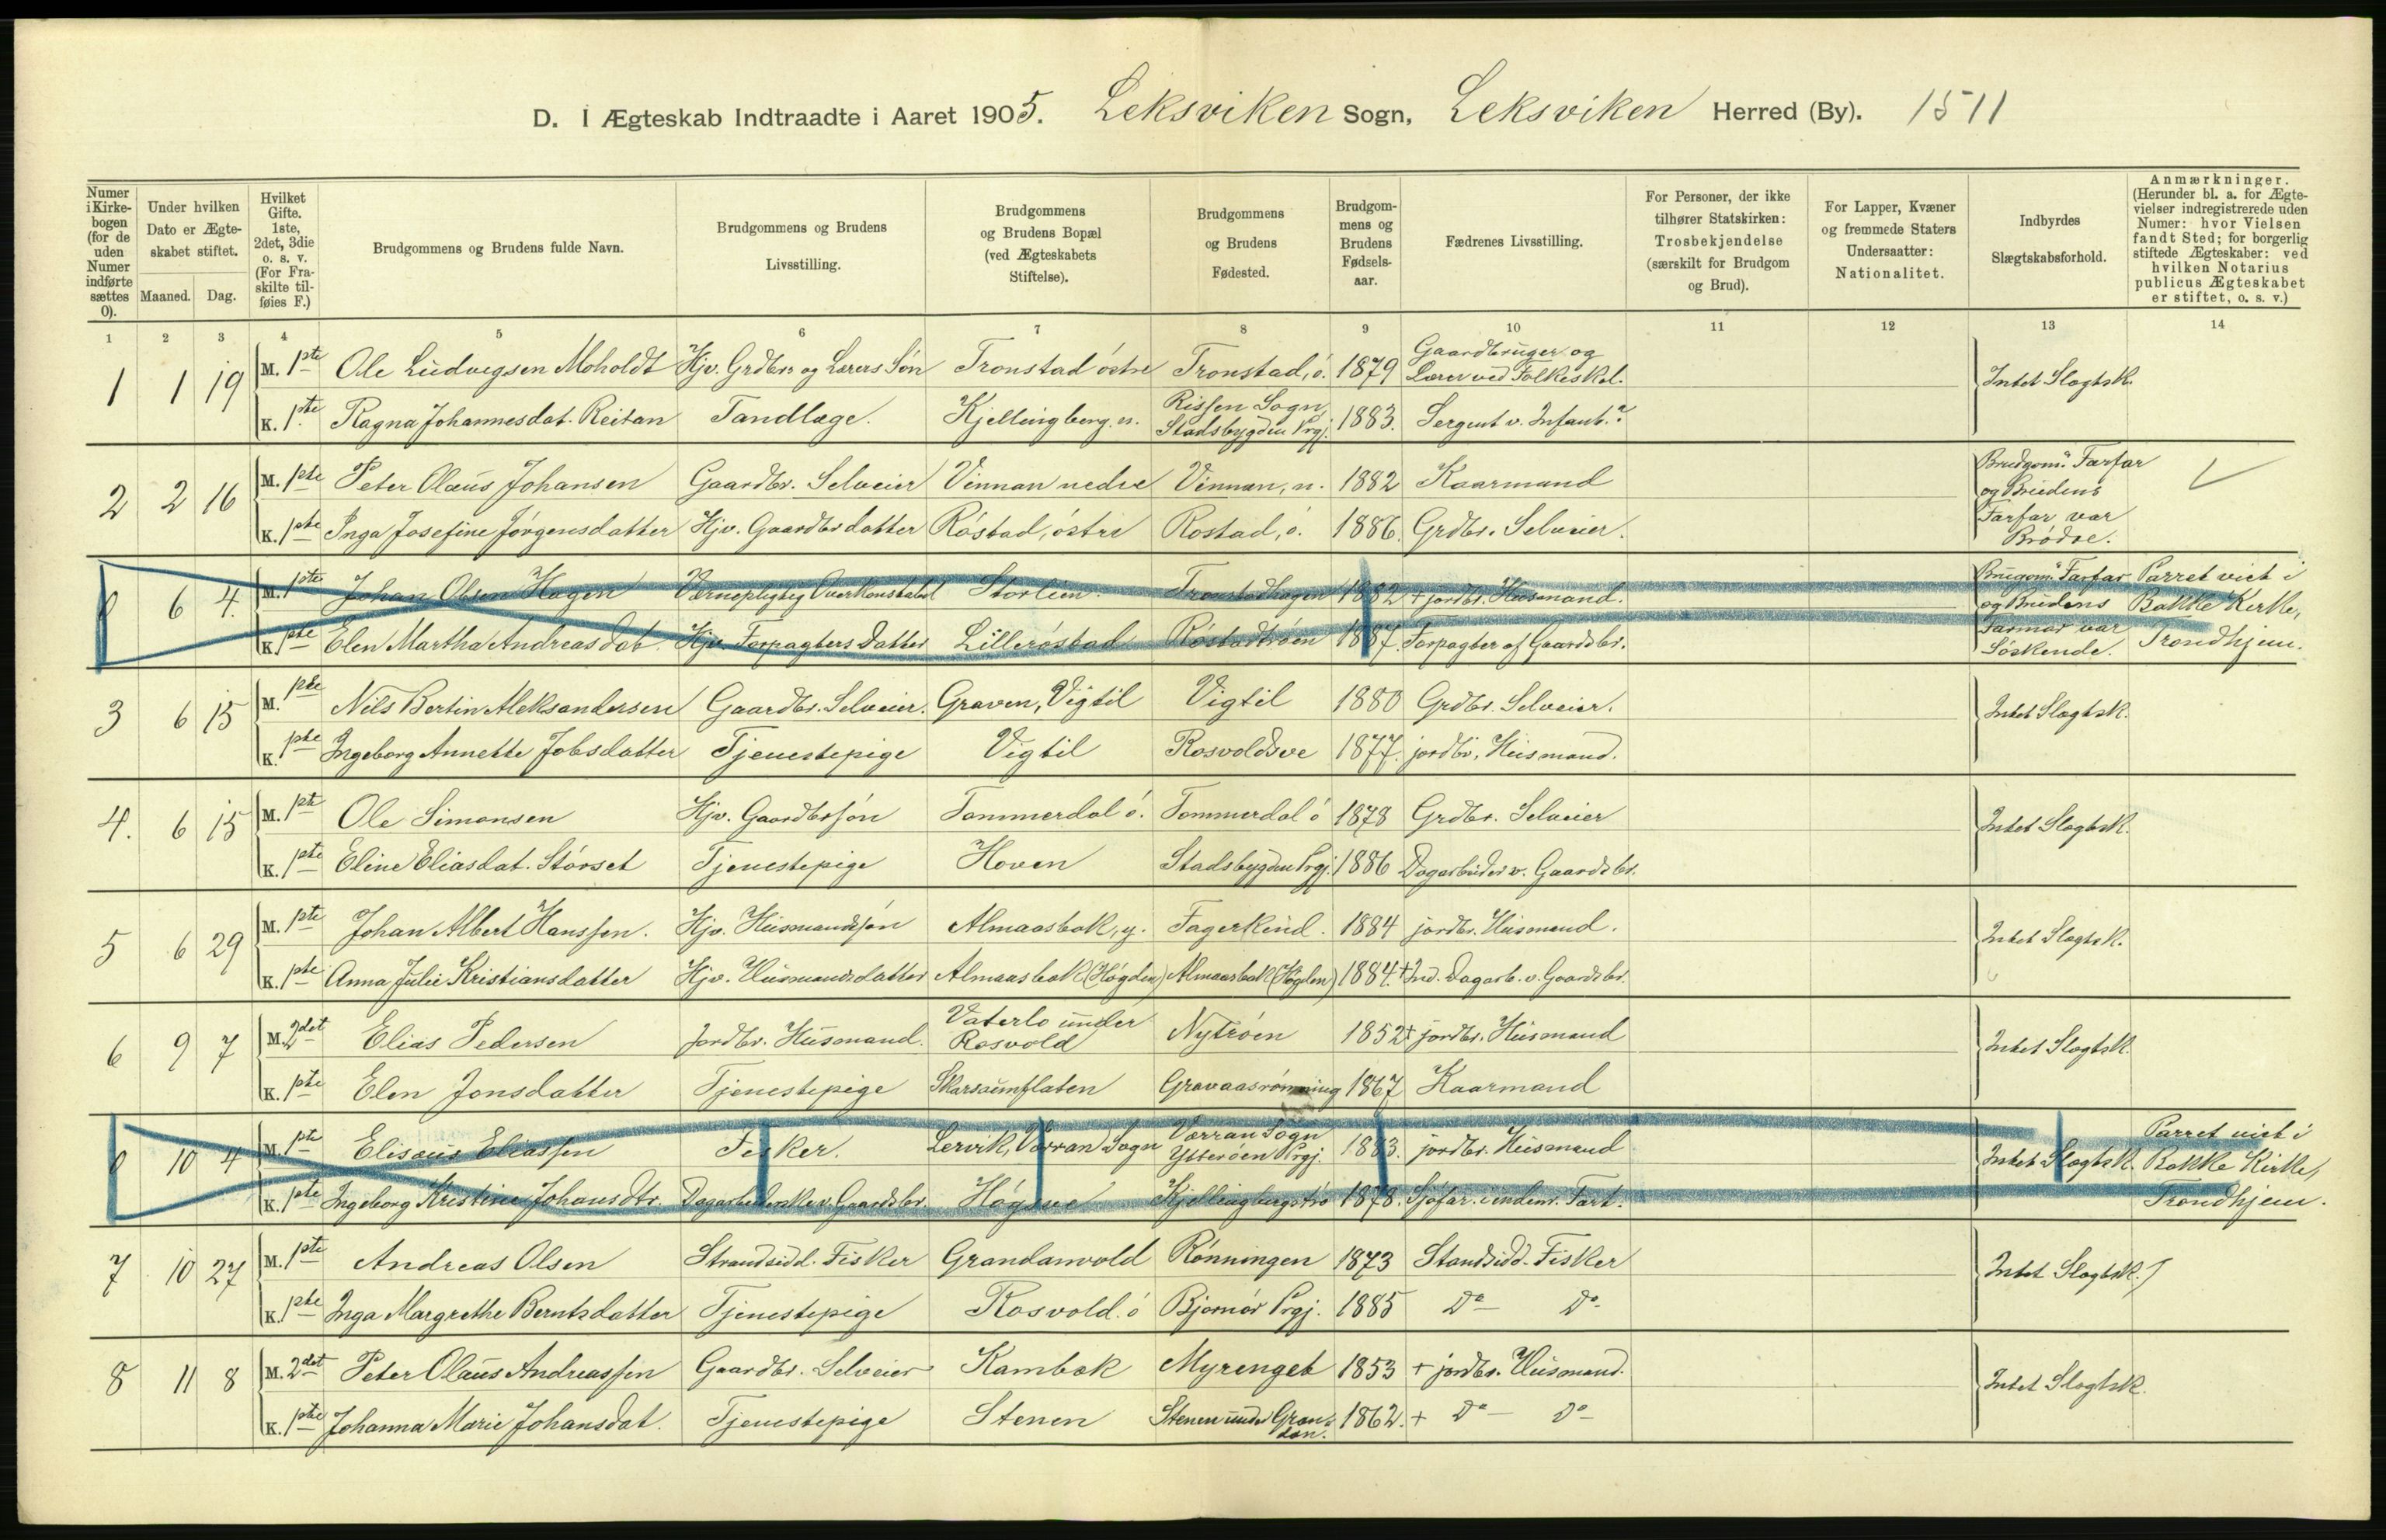 D. I Ægteskab Indtraadte i Aaret 1905. Leksviken Sogn, Leksviken Herred (By). 1511
Numer i Kirkebogen (for de uden Numer indførte sættes 0).
Under hvilken Dato er Ægteskabet stiftet.
Maaned. Dag.
Hvilket Gifte. 1ste, 2det, 3die o. s. v. (For Fraskilte tilføies F.)
Brudgommens og Brudens fulde Navn.
Brudgommens og Brudens Livsstilling.
Brudgommens og Brudens Bopæl (ved Ægteskabets Stiftelse).
Brudgommens og Brudens Fødested.
Brudgommens og Brudens Fødselsaar.
Fædrenes Livsstilling.
For Personer, der ikke tilhører Statskirken: Trosbekjendelse (særskilt for Brudgom og Brud).
For Lapper, Kvæner og fremmede Staters Undersaatter: Nationalitet.
Indbyrdes Slægtskabsforhold.
Anmærkninger. (Herunder bl. a. for Ægtevielser indregistrerede uden Numer: hvor Vielsen fandt Sted; for borgerlig stiftede Ægteskaber: ved hvilken Notarius publicus Ægteskabet er stiftet, o. s. v.)
1 2 3 4 5 6 7 8 9 10 11 12 13 14
1 1 19 M. 1ste Ole Ludvigsen Moholdt Hjv. Grdbrs og Lærers Søn Tronstad östre Tronstad, ö. 1879 Gaardbruger og Lærer ved Folkeskol. Intet Slægtsk.
K. 1ste Ragna Johannesdat. Reitan Tandlæge. Kjellingberg n. Rissen Sogn, Stadsbygden Prgj. 1883. Sergent v. Infant.
2 2 16 M. 1ste Peter Olaus Johansen Gaardbr. Selveier Vinnan nedre Vinnan, n. 1882 Kaarmand Brudgom. Farfar og Brudens Farfar var Brødre.
K. 1ste Inga Josefine Jörgensdatter Hjv. Gaardbrdatter Röstad, östre Röstad, ö. 1886. Grdbr. Selveier.
0 6 4. M. 1ste Johan Olsen Hagen Værnepligtig Overkonstabel Storlien. Tronstadhagen 1882 + jordbr. Husmand. Brugom. Farfar og Brudens Farmor var Söskende. Parret viet i Bakke Kirke, Trondhjem.
K. 1ste Elen Martha Andreasdat. Hjv. Forpagters Datter Lilleröstad Röstadtröen 1887. Forpagter af Gaardsbr.
3 6 15 M. 1ste Nils Bertin Aleksandersen Gaardbr. Selveier. Graven, Vigtil Vigtil 1880 Grdbr. Selveier. Intet Slægtsk.
K. 1ste Ingeborg Annette Jobsdatter Tjenestepige Vigtil Rosvoldsve 1877. jordbr. Husmand.
4. 6 15 M. 1ste Ole Simonsen Hjv. Gaardbrsön Tommerdal ö. Tommerdal ö 1878 Grdbr. Selveier Intet Slægtsk.
K. 1ste Eline Eliasdat. Störset Tjenestepige Hoven Stadsbygden Prgj. 1886 Dagarbeider v. Gaardsbr.
5 6 29 M. 1ste Johan Albert Hanssen. Hjv. Husmandssön Almaasbak, y. Fagerkind. 1884 jordbr. Husmand. Intet Slægtsk.
K. 1ste Anna Julie Kristiansdatter Hjv. Husmandsdatter Almaasbak (Högden) Almaasbak (Högden) 1884. + Ind. Dagarb. v. Gaardsbr.
6 9 7 M. 2det Elias Pedersen Jordbr. Husmand. Vaterlo under Rosvold Nytröen 1852 + jordbr. Husmand Intet Slægtsk.
K. 1ste Elen Jonsdatter Tjenestepige Skarsaumflaten Gravaasrönning 1867 Kaarmand
0 10 4 M. 1ste Elisæus Eliassen Fisker. Lervik, Værran Sogn Værran Sogn Ytteröen Prgj. 1883. jordbr. Husmand Intet Slægtsk. Parret viet i Bakke Kirke, Trondhjem.
K. 1ste Ingeborg Kristine Johansdtr. Dagarbeiderske v. Gaardsbr. Kjellingbergströ 1878. Sjöfar. i indenr. Fart.
7 10 27 M. 1ste Andreas Olsen Strandsidd. Fisker Grandanvold Rönningen 1873 Standsidd. Fisker Intet Slægtsk.
K. 1ste Inga Margrethe Berntsdatter Tjenestepige Rosvold. ö Bjørnör Prgj. 1885 Do Do
8 11 8 M. 2det Peter Olaus Andreassen Gaardbr. Selveier Kambak Myrenget 1853 + jordbr. Husmand. Intet Slægtsk.
K. 1ste Johanna Marie Johansdat. Tjenestepige Stenen Stenen under Grandan. 1862. + Do Do